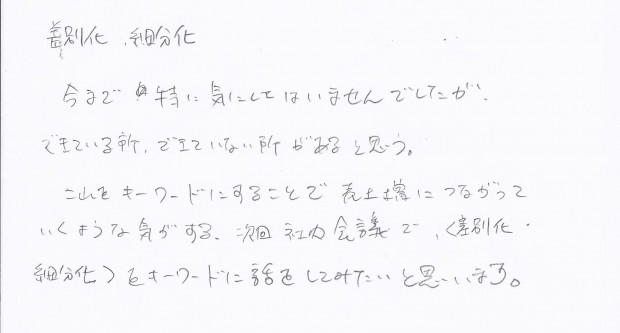 差別化、細分化
今まで特に気にしてはいませんでしたが、
できている所、できていない所があると思う。
これをキーワードにすることで売上増につながって
いくような気がする。次回社内会議で、〈差別化・
細分化〉をキーワードに話をしてみたいと思います。